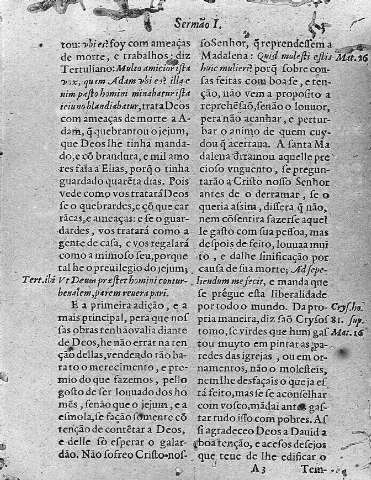 Sermão I.
tou: vbi est? foy com ameaças
de morte, e trabalhos, diz
Tertuliano: Multo amicior ista
vox, quem Adam vbi est illa e-
nim pasto homini minabatur ista
ieiuno blandiabatur, trata Deos
com ameaças de morte a A-
dam, q̃ quebrantou o jejum,
que Deos lhe tinha manda-
do, e cõ brandura, e mil amo
res fala a Elias, porq̃ o tinha
guardado quarẽta dias. Pois
vede como vos tratará Deus
se o quebrardes, e cõ que car
rãcas, e ameaças: e se o guar-
dardes, vos tratará como a
gente de casa, e vos regalará
como a mimoso seu, porque
tal he o preuilegio do jejum,
Tert. ibi Vt Deum præster homini contur-
benalem, parem reuera pari.
E a primeira adição, e a
mais principal, pera que nos
sas obras tenhão valia diante
de Deos, he não errar na ten
ção dellas, vendendo tão ba-
rato o merecimento, e pre-
mio do que fazemos, pello
gosto de ser louuado dos ho
mẽs, senão que o jejum, e a
esmola, se fação sómente cõ
tenção de contẽtar a Deos,
e delle só esperar o galar-
dão. Não sofreo Christo nos-
so Senhor, q̃ reprendessem a
Madalena: Quid molesti estis Mat. 26
huic mulieri? porq̃ sobre cou-
sas feitas com boa fe, e ten-
ção, não vem a proposito a
reprehẽsaõ, senão o louuor,
pera não acanhar, e pertur-
bar o animo de quem cuy-
dou q̃ acertaua. A santa Ma
dalena derramou aquelle pre
cioso vnguento, se pregun-
tarão a Cristo nosso Senhor
antes de o derramar, se o
queria assim, dissera q̃ não,
nem cõsentira fazerse aquel
le gasto com sua pessoa, mas
despois de feito, louuaa mui
to, e dalhe sinificação por
causa de sua morte; Ad sepe-
liendum me fecit, e manda que
se prégue esta liberalidade
por todo o mundo. Da pro-
pria maneira, diz saõ Crysos Crys. ho.
tomo, se virdes que hum gas 81. sup.
tou muyto em pintar as pa- Mat. 26
redes das igrejas, ou em or-
namentos, não o molesteis,
nem lhe desfaçais o que ja es
tá feito, mas se se aconselhar
com vosco, mãdai ante gas-
tar tudo isso com pobres. As
si agradeceo Deos a Dauid a
boa tenção, e os desejos
que teue de lhe edificar o
A3 Tem-